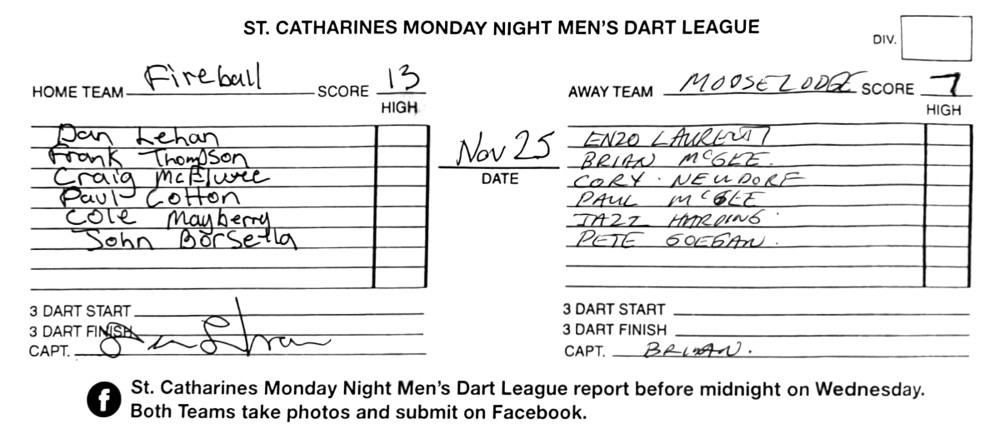 ST. CATHARINES MONDAY NIGHT MEN'S DART LEAGUE
DIV.
HOME TEAM Fireball SCORE 13
HIGH
AWAY TEAM MOOSE LODGE SCORE 7
HIGH
Dan Lehan
Frank Thompson
Craig McElwee
Paul Cotton
Cole Mayberry
John Borsella
Nov 25
DATE
ENZO LAURENTI
BRIAN McGEE.
CORY. NEUDORF
PAUL McGEE
JAZZ HARDING.
PETE GOEGAN.
3 DART START
3 DART FINISH
CAPT.
3 DART START
3 DART FINISH
CAPT. BRIAN.
f St. Catharines Monday Night Men's Dart League report before midnight on Wednesday.
Both Teams take photos and submit on Facebook.